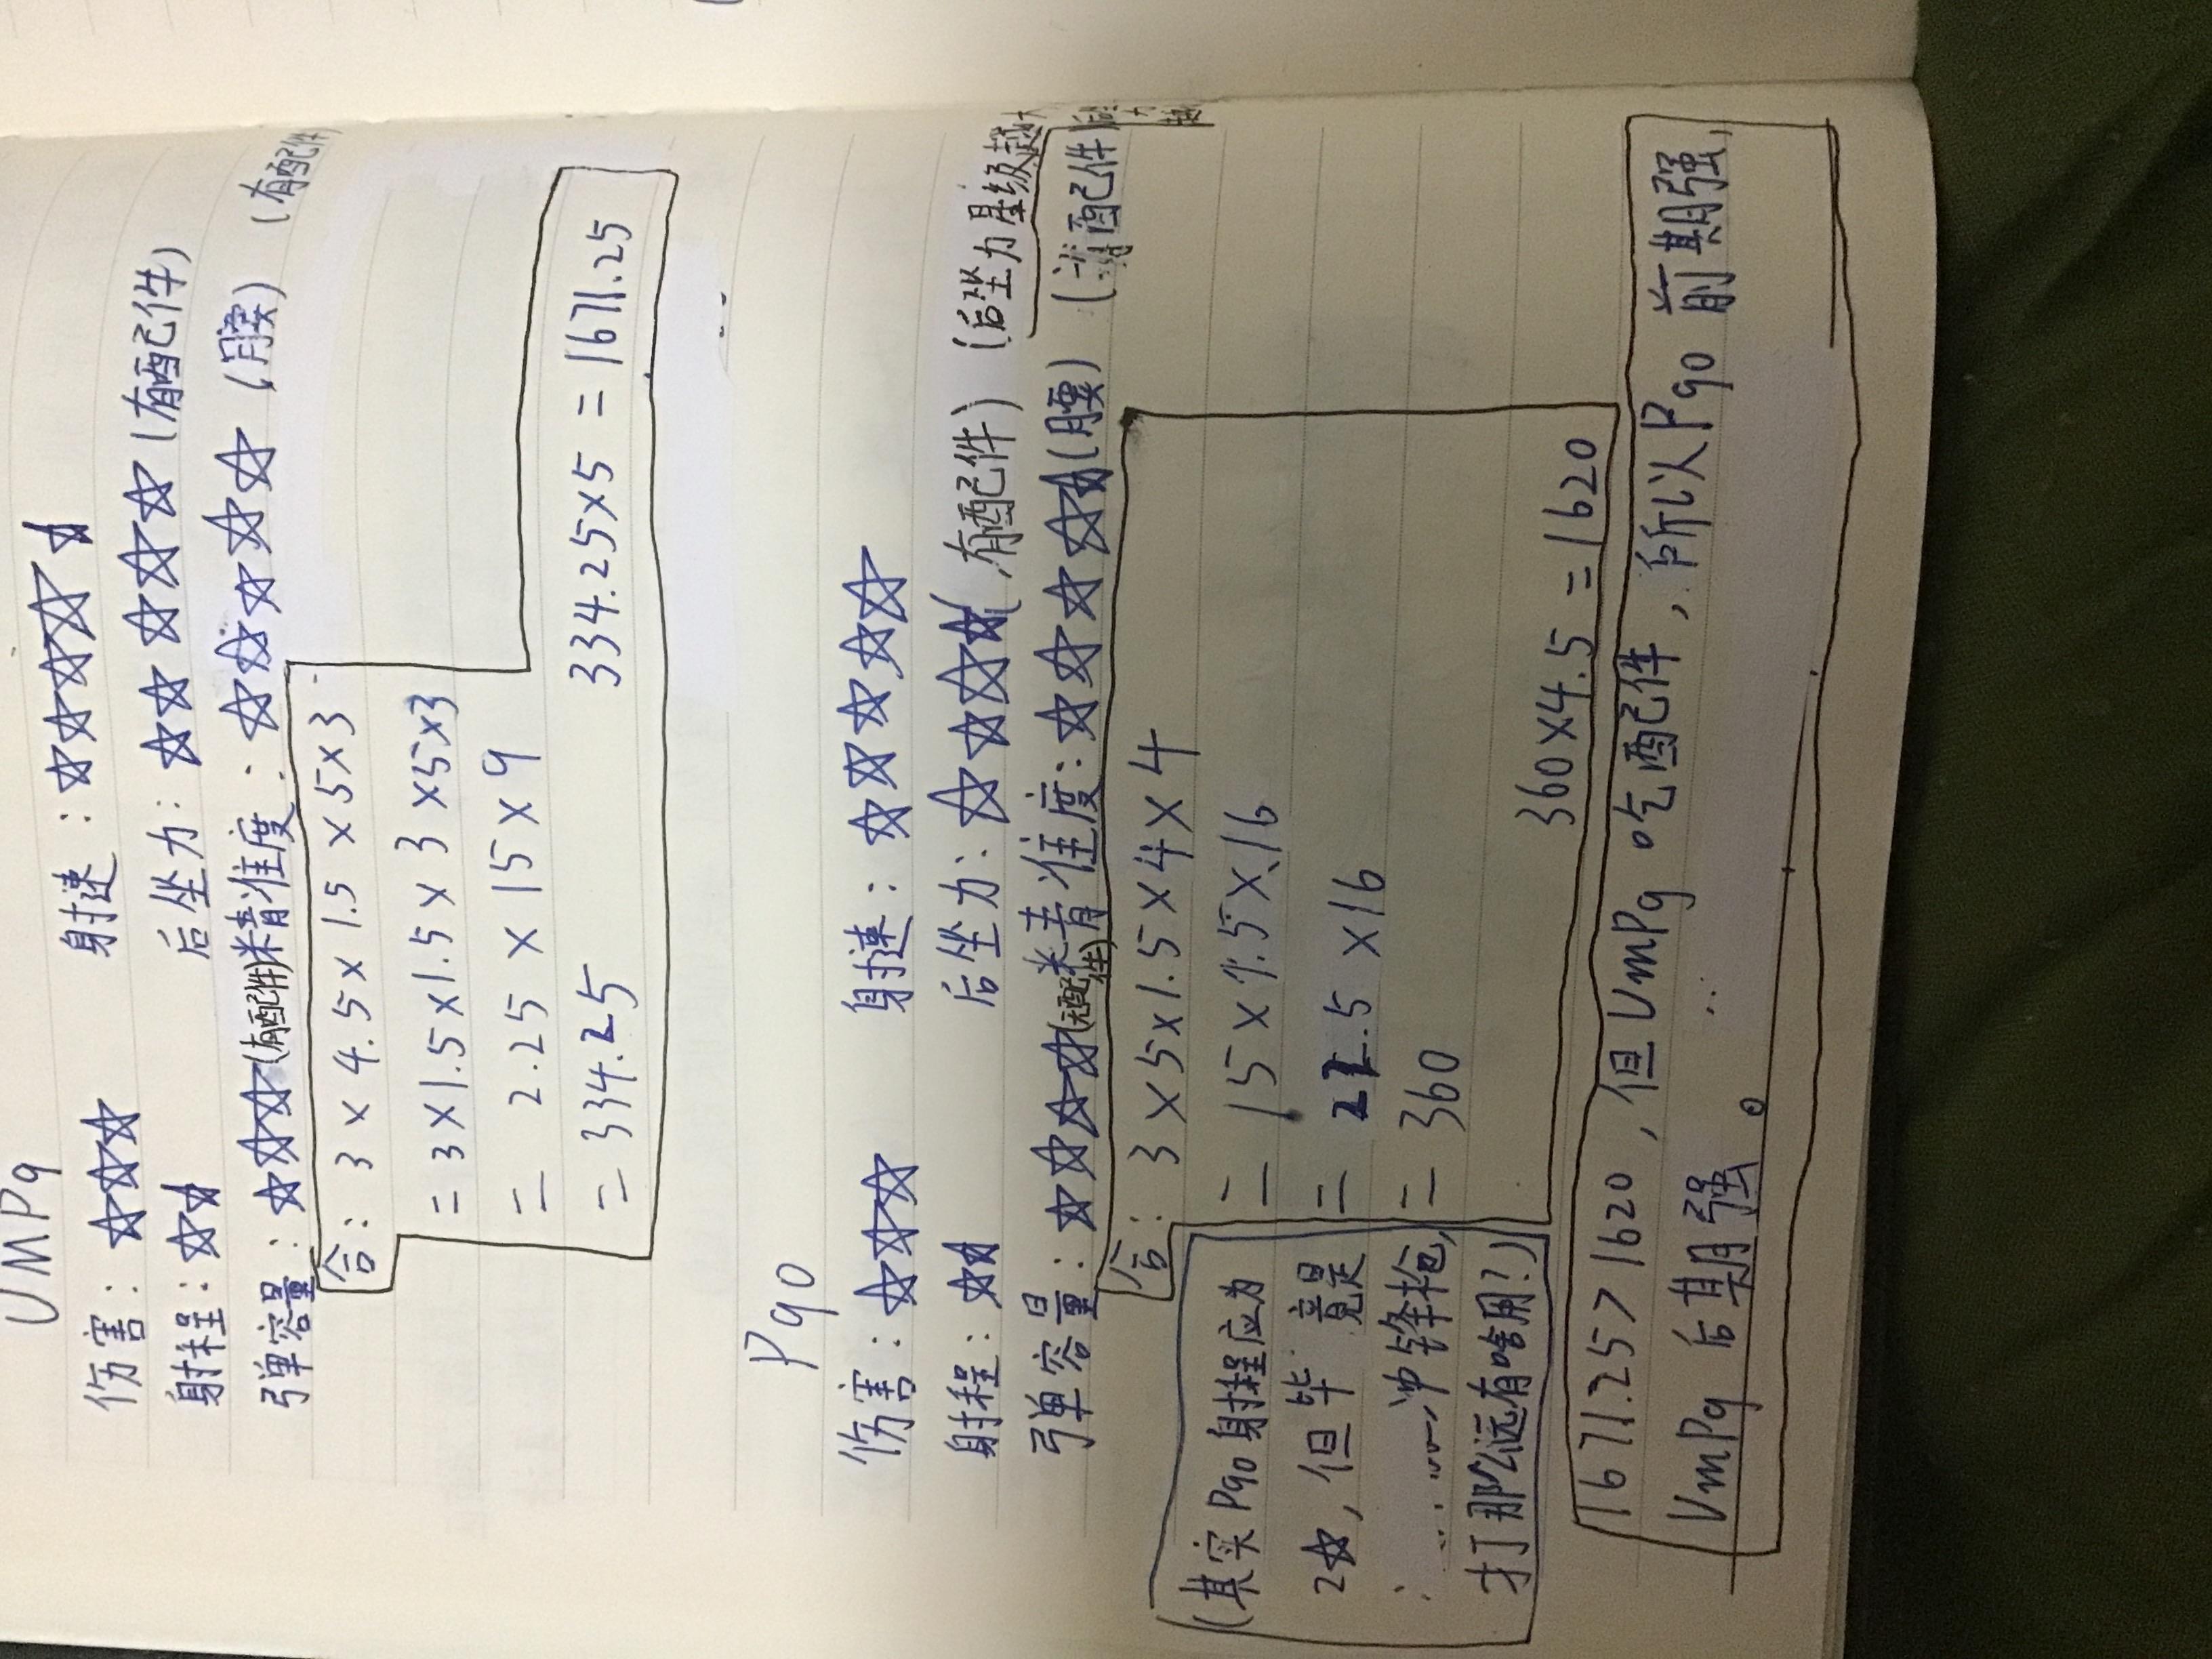 UMP9
伤害：☆☆☆ 射速：☆☆☆☆⯨
射程：☆⯨ 后坐力：☆☆☆☆☆（有配件）
弹单容量：☆☆☆☆（有配件） 精准度：☆☆☆☆☆（腰）（有配件
合：3×4.5×1.5×5×3
=3×1.5×1.5×3×5×3
=2.25×15×9
=334.25 334.25×5=1671.25
P90
伤害：☆☆☆ 射速：☆☆☆☆☆
射程：☆⯨ 后坐力：☆☆☆☆（有配件）（后坐力星级越大
弹单容量：☆☆☆☆（无配件） 精准度：☆☆☆☆⯨（腰）（有配件
合：3×5×1.5×4×4
=15×1.5×16
=22.5×16
=360
360×4.5=1620
（其实P90射程应为
2☆，但毕竟是
冲锋枪，
打那么远有啥用？）
1671.25>1620，但UmP9吃配件，所以P90前期强，
UmP9后期强。